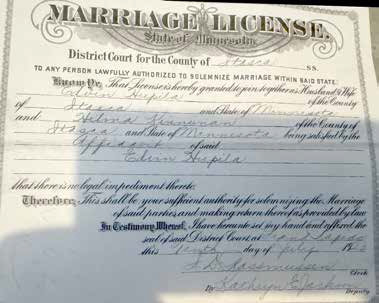 MARRIAGE LICENSE.
State of Minnesota,
District Court for the County of Itasca ss.
TO ANY PERSON LAWFULLY AUTHORIZED TO SOLEMNIZE MARRIAGE WITHIN SAID STATE.
Know Ye, That License is hereby granted to join together as Husband & Wife
Edwin Hupila of the County
of Itasca and State of Minnesota
and Hilma of the County of
Itasca and State of Minnesota being satisfied by the
Affidavit of said
Edwin Hupila
that there is no legal impediment thereto.
Therefore, This shall be your sufficient authority for solemnizing the Marriage
of said parties and making return thereof as provided by law
In Testimony Whereof, I have hereunto set my hand and affixed the
seal of said District Court at Grand Rapids
this Tenth day of July
Rassmussen
Clerk
By Kathryn E.
Deputy